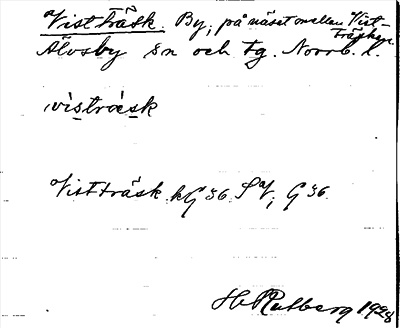 Vistträsk. By, på näset mellan Vist-
träsken.
Älvsby sn och tg. Norrb. l.
vistràsk
Vistträsk kG 36 SV; G 36
H Rutberg 1928